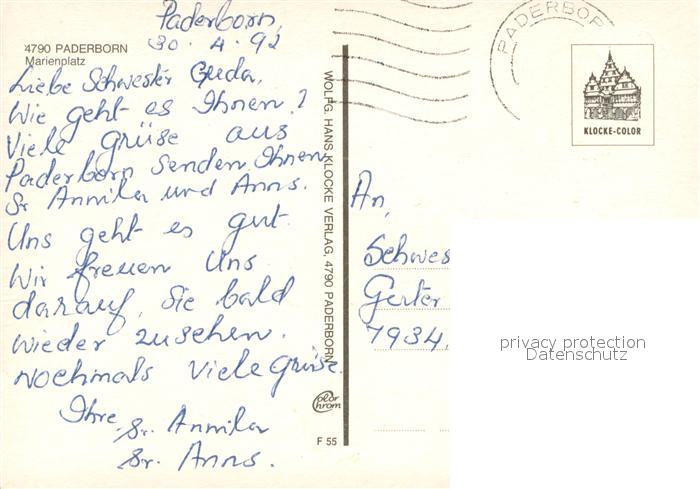 Paderborn,
30.4.92
4790 PADERBORN
Marienplatz
Liebe Schwester Guda,
Wie geht es Ihnen?
Viele grüse aus
Paderborn senden Ihnen
Sr Annila und Anns.
Uns geht es gut.
Wir freuen Uns
darauf, Sie bald
wieder zusehen.
nochmals viele Grüse.
Ihre,
Sr. Annila
Sr. Anns.
WOLFG. HANS KLOCKE VERLAG, 4790 PADERBORN
Color
chrom
F 55
PADERBOR
KLOCKE-COLOR
An,
Schwes
Gerter
7934,
privacy protection
Datenschutz